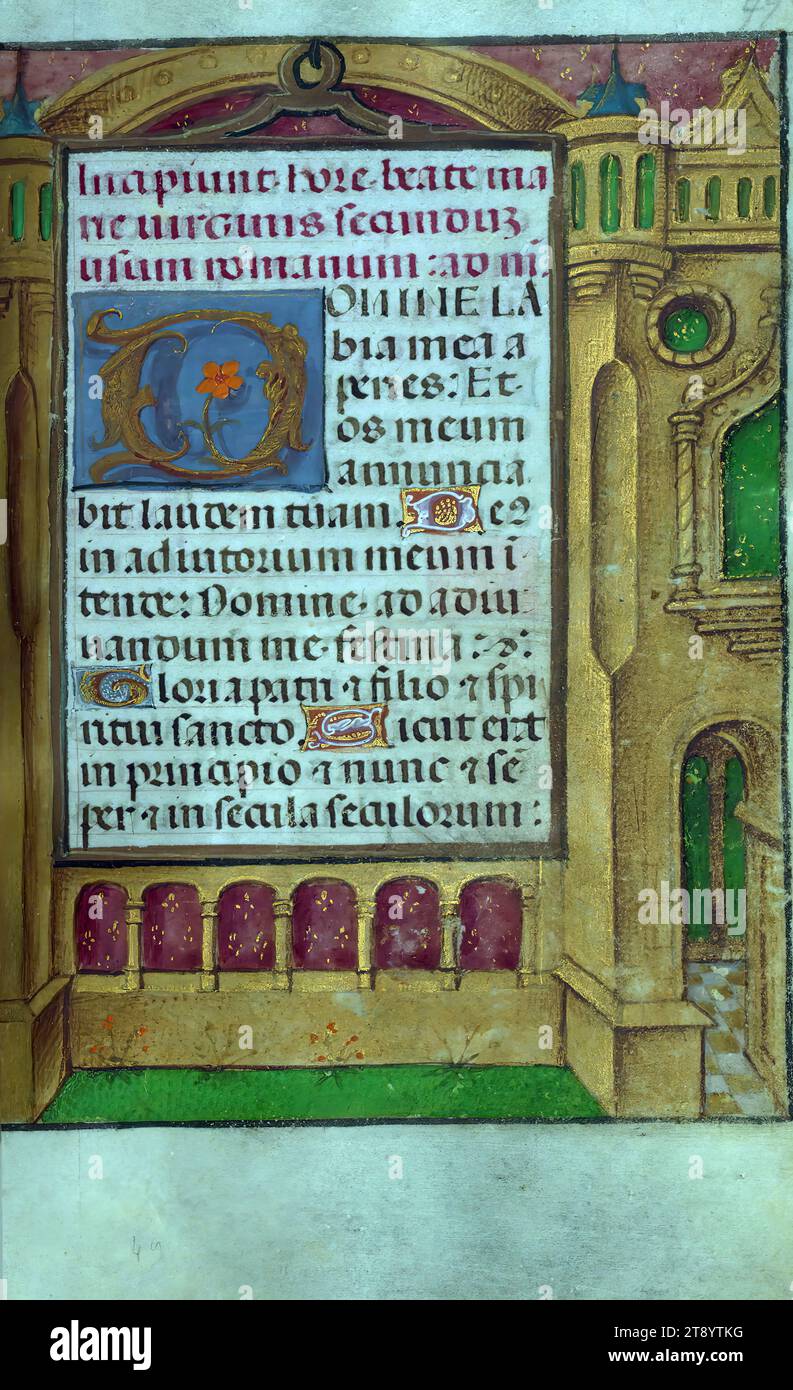 49
Incipiunt. hore. beate ma
rie virginis secunduʒ
usum romanum: ad m̄.
DOMINE LA
bia mea a
peries: Et
os meum
annuncia
bit laudem tuam. De9
in adiutorium meum ī
tende: Domine. ad adiu
uandum me festina:
Gloria patri ⁊ filio ⁊ spi
ritui sancto Sicut erat
in principio ⁊ nunc ⁊ sē
per ⁊ in secula seculorum:
49
alamy
Image ID: 2T8YTKG
www.alamy.com